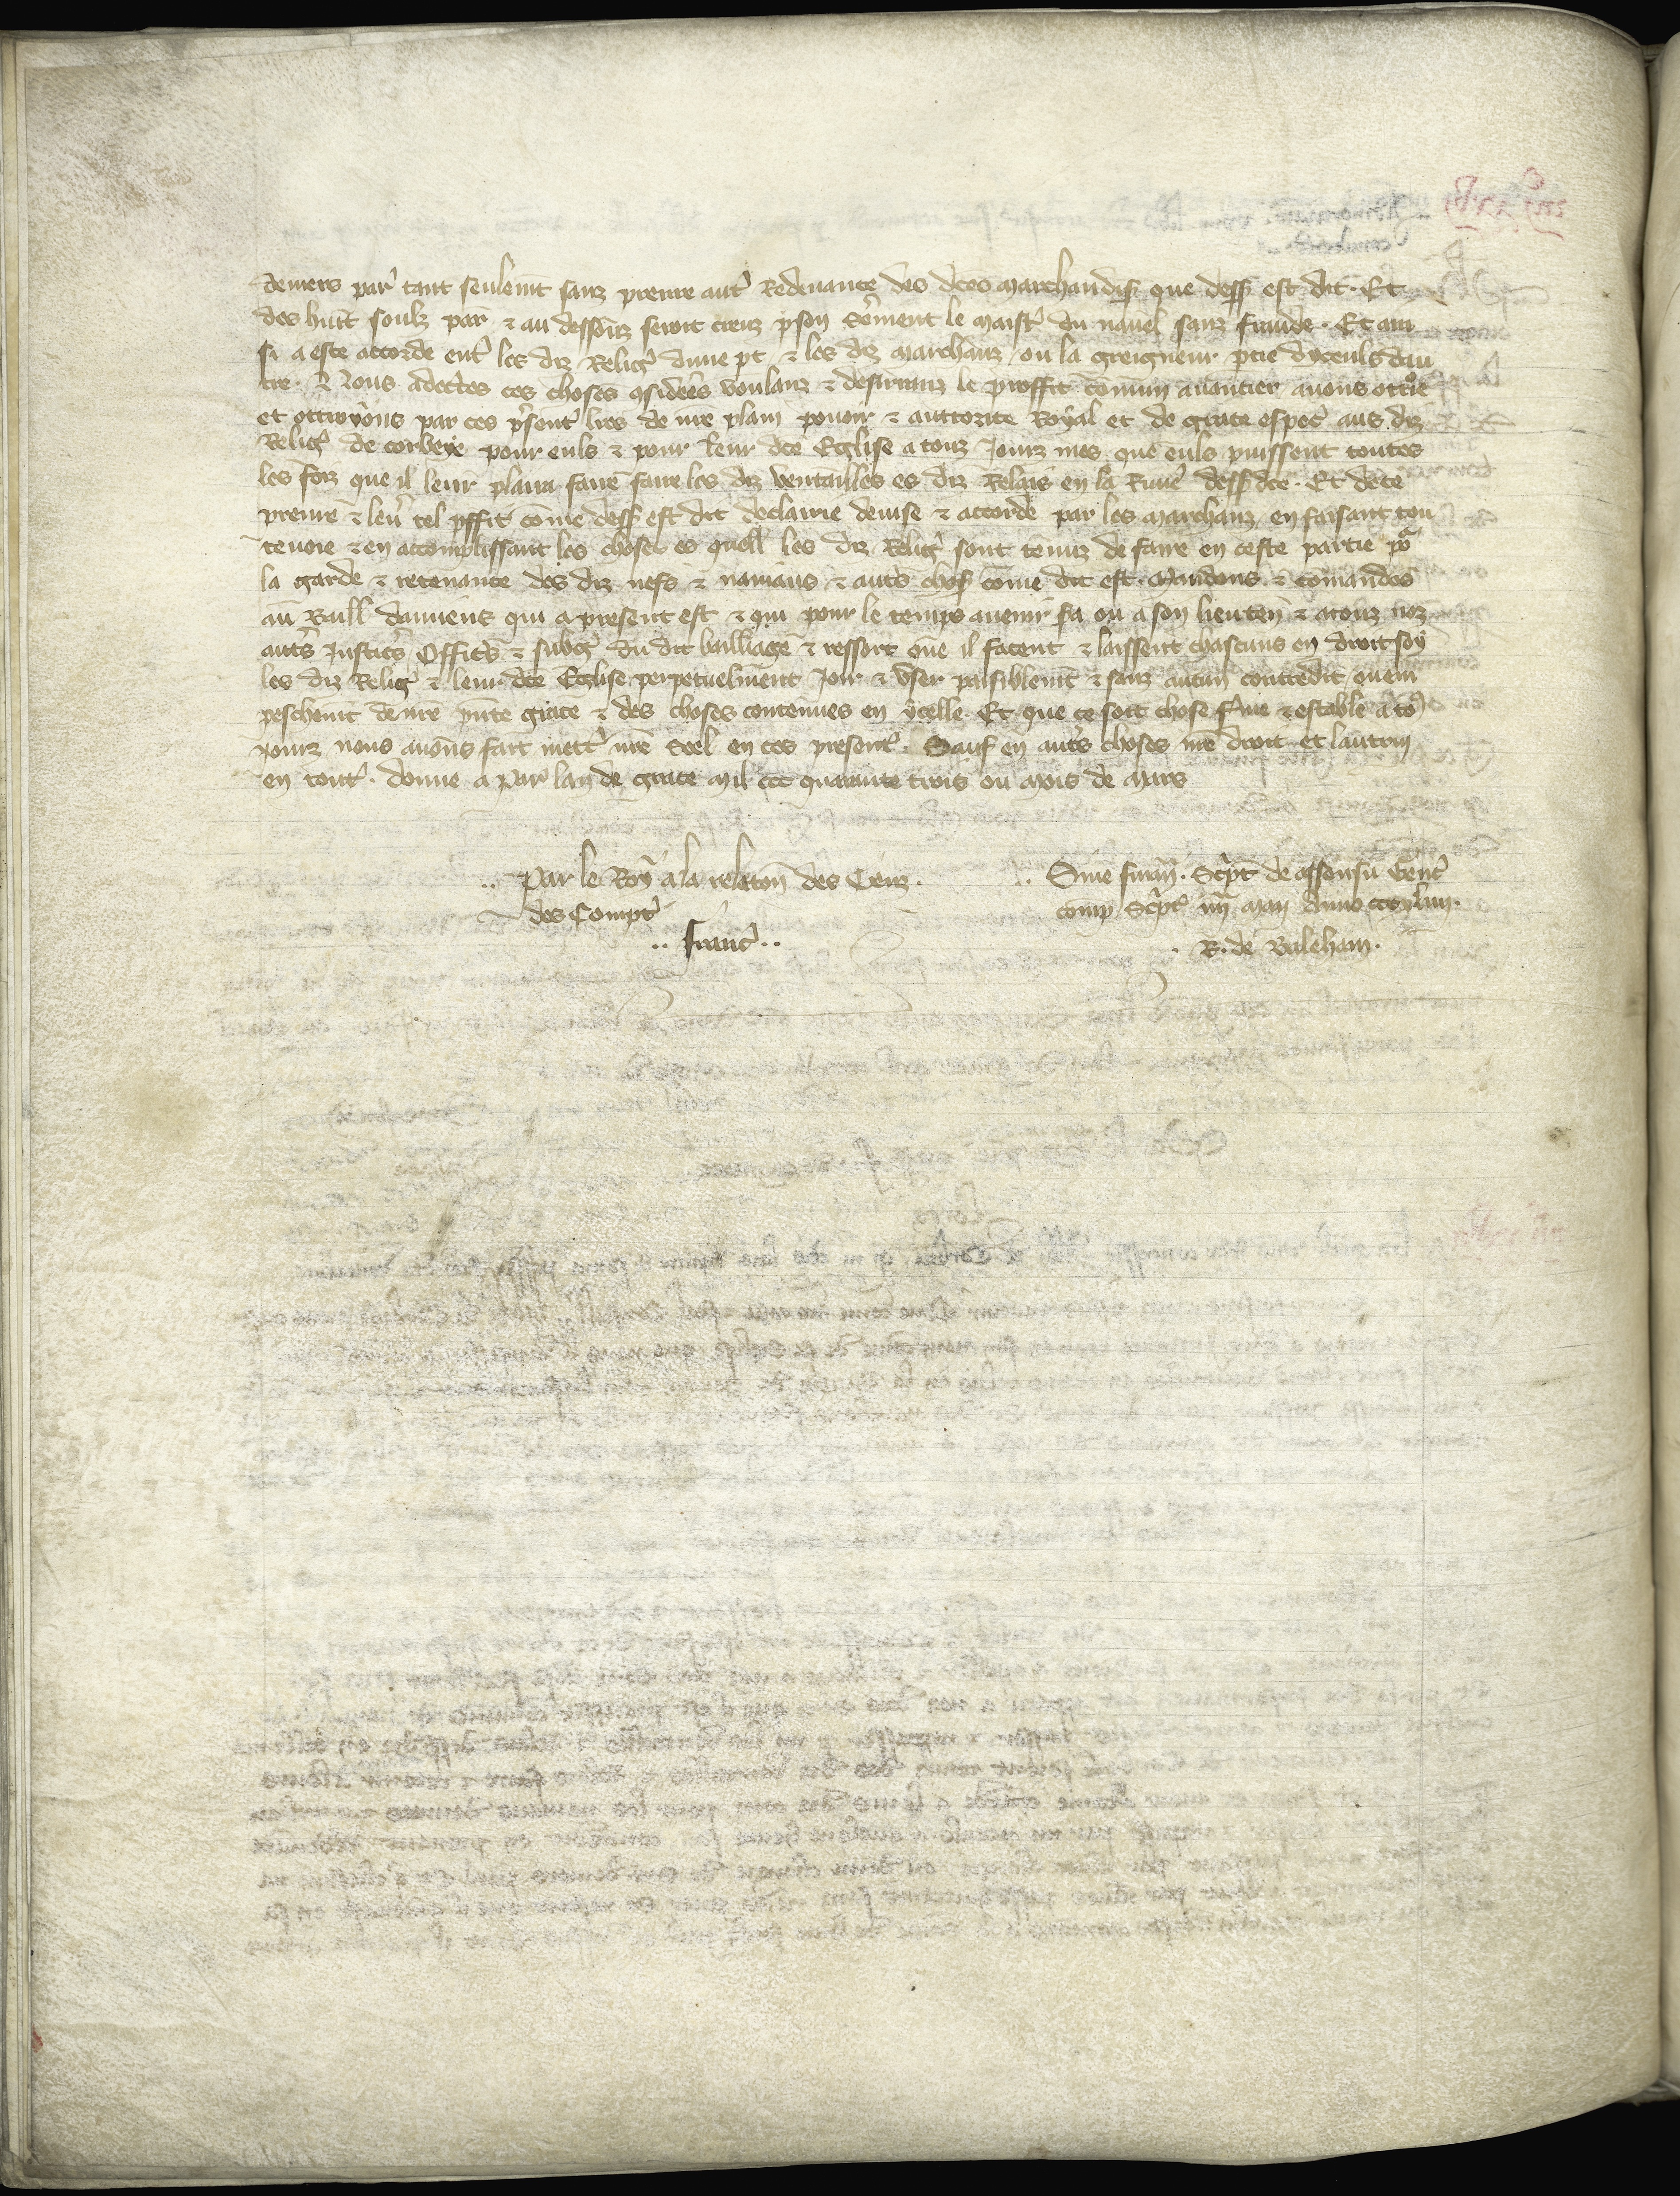 deniers par' tant seulemt sanz prenre autr' Redevance des dces marchandis' que dess' est dit. Et
des huit soulz par. & au dessouz seroit creuz p son serement le maistr' du navel sanz fraude. Et ain
si a este accorde entr' les diz Relig' dune pt & les diz marchanz ou la greigneur ptie dyceuls dau
tre. Nous adectes ces choses 9siderees voulanz & desirranz le proffit comun avancier avons ottroie
et ottroyons par ces psent' lres de nre plain povoir & auttorite Royal et de grace espec' aus diz
Relig' de corbeye pour euls & pour leur dce Eglise a touz Jourz mes que euls puissent toutes
les foiz que il leur plaira faire faire les diz ventailles es diz Relais en la Rivie' dess' dce. Et de ce
prenre & lev' tel pffit come dess' est dit declairie devise & accorde par les marchanz en faisant tou
te voie & en accomplissant les choses es quell' les diz Relig' sont tenuz de faire en ceste partie po'
la garde & retenance des diz nefs & naviaus & autes chos' come dit est. Mandons & comandos
au Baill' damiens qui a present est & qui pour le temps avenir sa ou a son lieuten' & a touz noz
autes Justices Offices & subgi' du dit bailliage & ressort que il facent & laissent chascuns en droit soy
les diz Relig' & leur dce Eglise perpetuelment Joir & User paisiblemt & sanz aucun contredit ou em
peschemt de nre pnte grace & des choses contenues en ycelle. Et que ce soit chose ferme & estable a to9
jourz nous avons fait mettr' nre Seel en ces present'. Sauf en autes choses nre droit et lautrui
en tout'. donne a Par' lan de grace Mil ccc quarante trois ou Mois de Mars
.. Par le Roy a la relaton des Genz.
des Compt'
.. Franc' ..
.. Sine finan'. Script' de assensu Gent'
comp. Script' iiij Maii Anno cccxliiij.
. R. de Baleham.